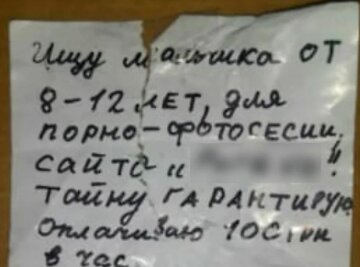 Ищу от
8-12 лет, для
порно-фотосесии,
сайта „ "
тайну гарантирую
оплачиваю
в час